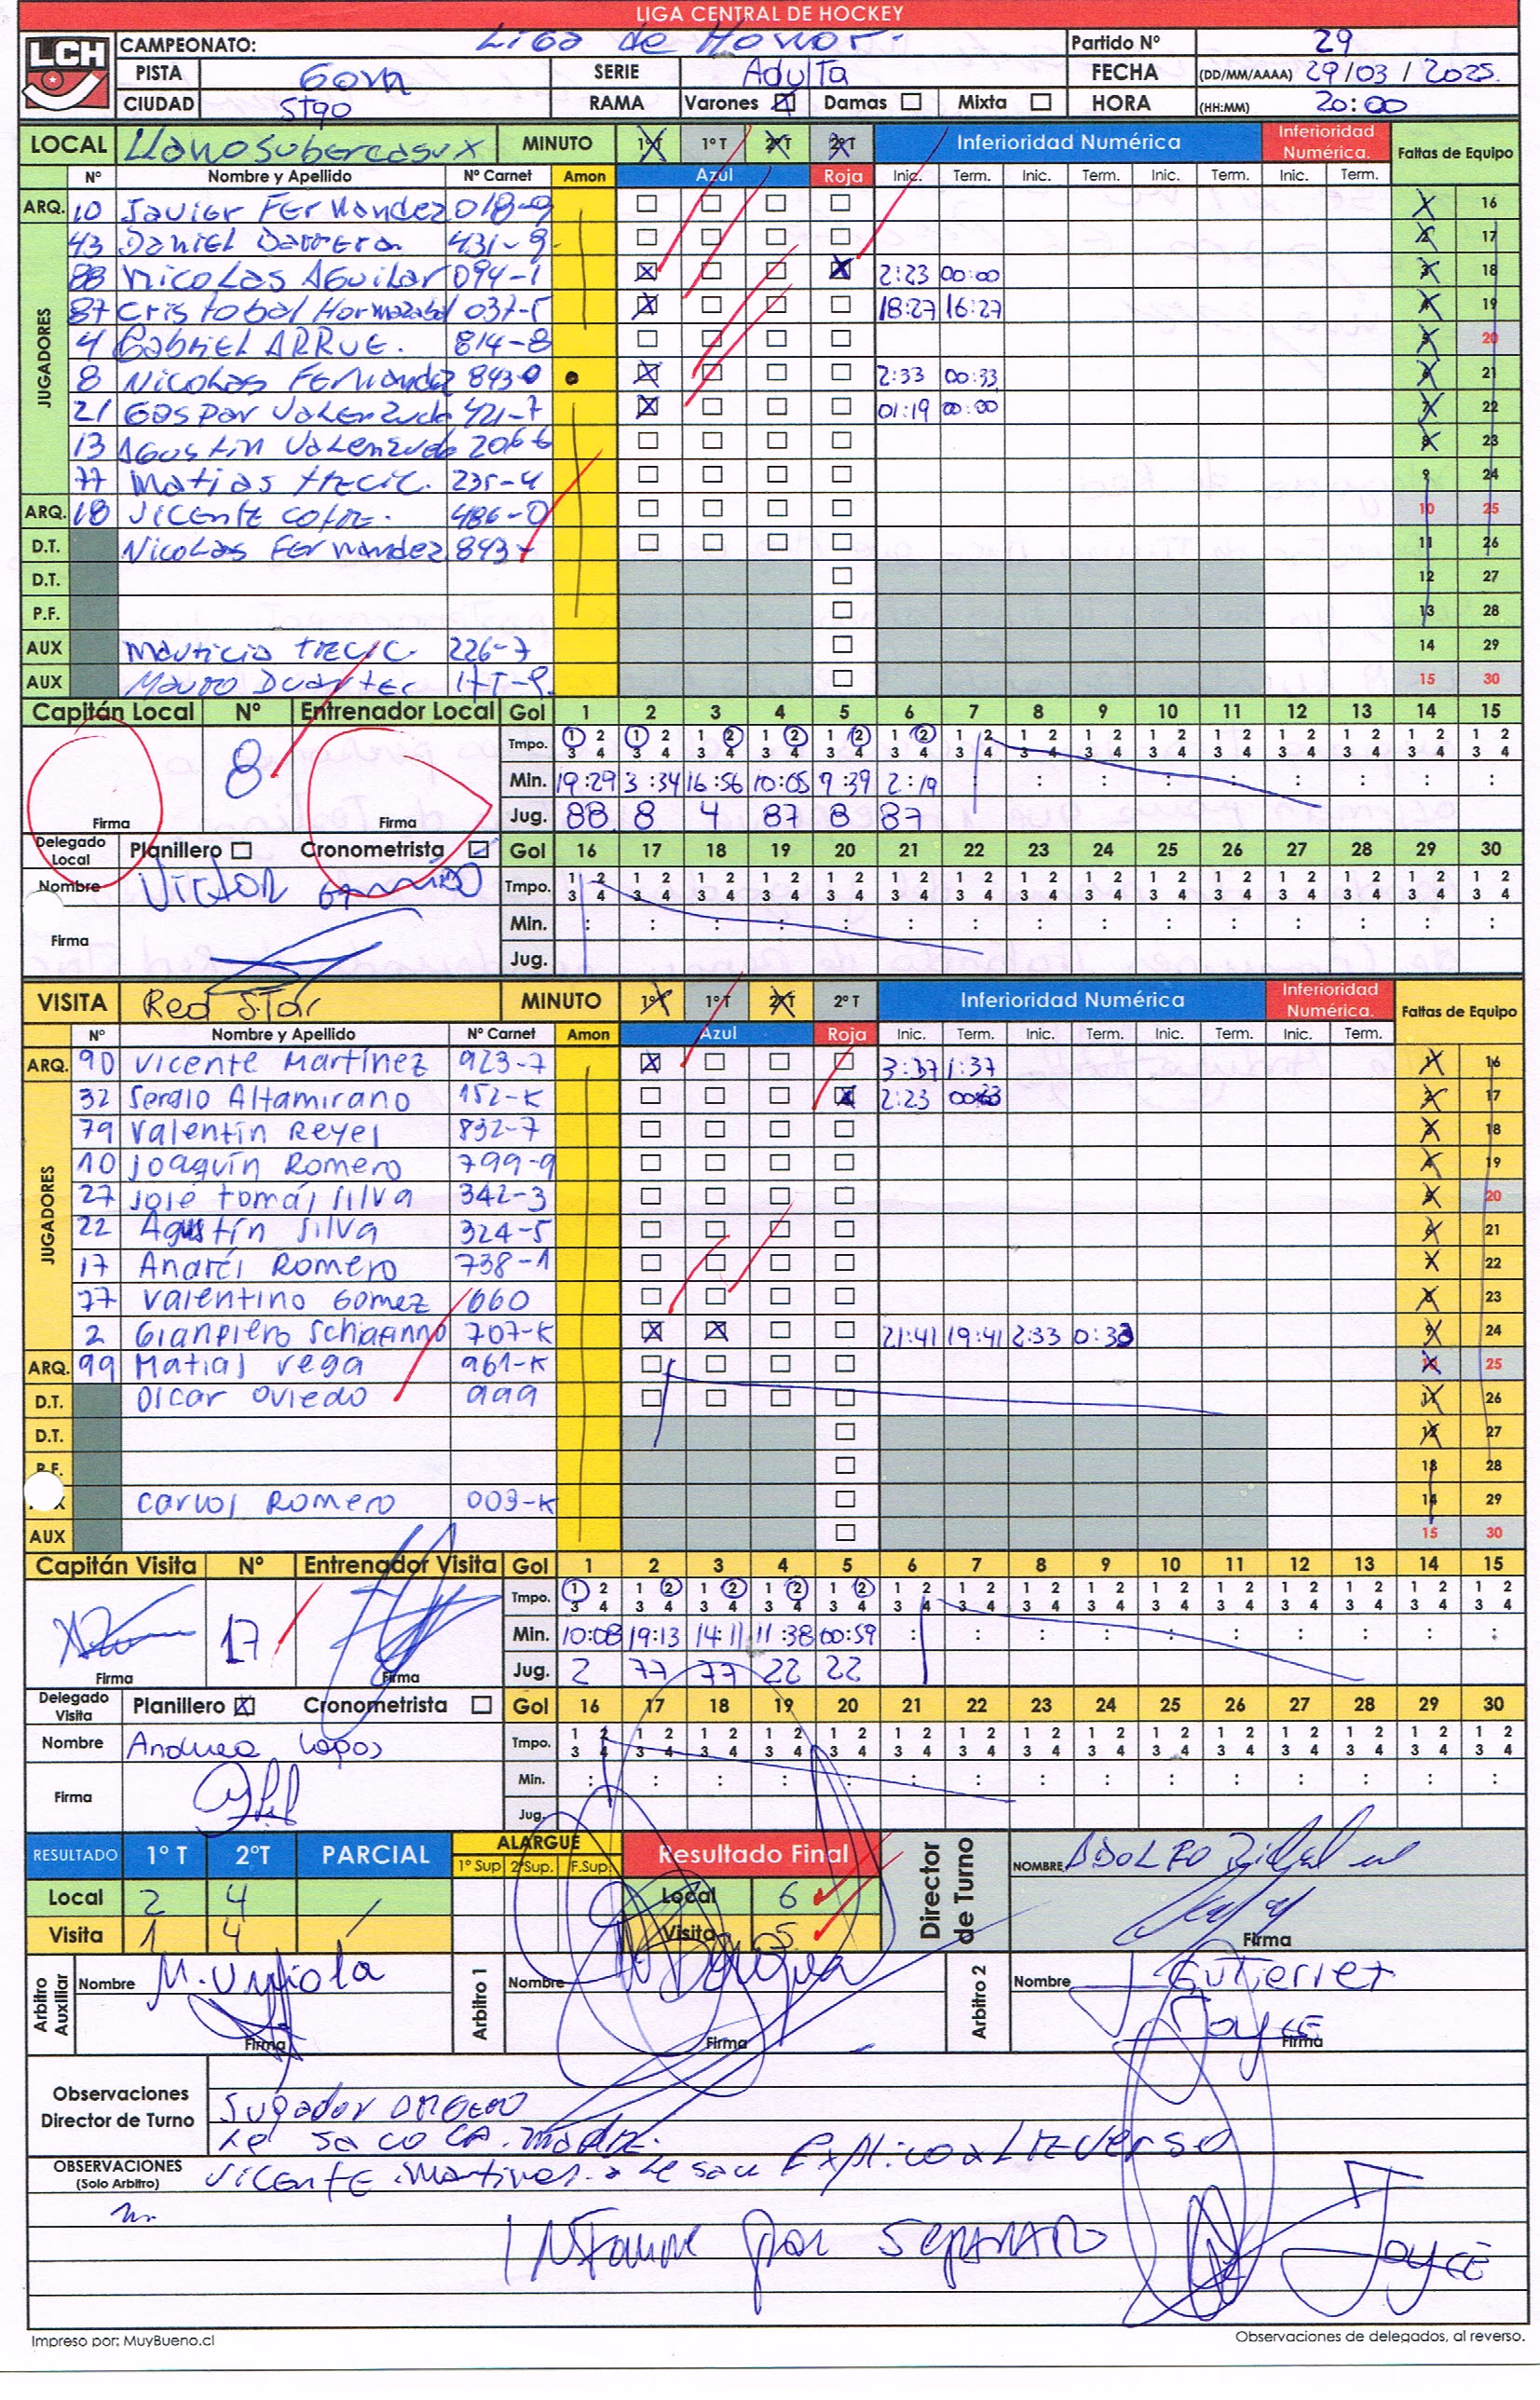 LIGA CENTRAL DE HOCKEY
LCH CAMPEONATO: Liga de Honor. Partido Nº 29
PISTA SERIE Adulta FECHA (DD/MM/AAAA) 29/03/2025.
CIUDAD STGO RAMA Varones Damas Mixta HORA (HH:MM) 20:00
LOCAL Llano Subercaseaux MINUTO 1ºT 1º T 2ºT 2ºT Inferioridad Numérica Inferioridad Numérica. Faltas de Equipo
Nº Nombre y Apellido Nº Carnet Amon Azul Roja Inic. Term. Inic. Term. Inic. Term. Inic. Term.
ARQ. 10 Javier Fernandez 018-9 1 16
JUGADORES
43 Daniel Barrera 431-9 2 17
88 Nicolas Aguilar 094-1 2:23 00:00 3 18
87 Cristobal Hormazabal 037-5 18:27 16:27 4 19
4 Gabriel ARRUE. 814-8 5 20
8 Nicolas Fernandez 843-0 2:33 00:33 6 21
21 Gaspar Valenzuela 421-7 01:19 00:00 7 22
13 Agustin Valenzuela 206-6 8 23
77 Matias Trecic. 235-4 9 24
ARQ. 18 Vicente Cofre. 486-0 10 25
D.T. Nicolas Fernandez 843- 11 26
D.T. 12 27
P.F. 13 28
AUX Mauricio Trecic 226-7 14 29
AUX Mauro Duarte 15 30
Capitán Local Nº Entrenador Local Gol 1 2 3 4 5 6 7 8 9 10 11 12 13 14 15
8
Tmpo. 1 2 3 4 1 2 3 4 1 2 3 4 1 2 3 4 1 2 3 4 1 2 3 4 1 2 3 4 1 2 3 4 1 2 3 4 1 2 3 4 1 2 3 4 1 2 3 4 1 2 3 4 1 2 3 4 1 2 3 4
Min. 19:29 3:34 16:56 10:05 9:39 2:19 : : : : : : : : :
Firma Firma Jug. 88 8 4 87 8 87
Delegado Local Planillero Cronometrista Gol 16 17 18 19 20 21 22 23 24 25 26 27 28 29 30
Nombre Victor
Tmpo. 1 2 3 4 1 2 3 4 1 2 3 4 1 2 3 4 1 2 3 4 1 2 3 4 1 2 3 4 1 2 3 4 1 2 3 4 1 2 3 4 1 2 3 4 1 2 3 4 1 2 3 4 1 2 3 4 1 2 3 4
Firma Min. : : : : : : : : : : : : : : :
Jug.
VISITA Red Star MINUTO 1ºT 1º T 2ºT 2º T Inferioridad Numérica Inferioridad Numérica. Faltas de Equipo
Nº Nombre y Apellido Nº Carnet Amon Azul Roja Inic. Term. Inic. Term. Inic. Term. Inic. Term.
ARQ. 90 Vicente Martínez 923-7 3:37 1:37 1 16
JUGADORES
32 Sergio Altamirano 152-K 2:23 2 17
79 Valentín Reyes 832-7 3 18
10 Joaquín Romero 799-9 4 19
27 José Tomás Silva 342-3 5 20
22 Agustín Silva 324-5 6 21
17 Andrés Romero 738-1 7 22
77 Valentino Gomez 060 8 23
2 Gianpiero Schiafinno 707-K 21:41 19:41 2:33 0:33 9 24
ARQ. 99 Matias Vega 961-K 10 25
D.T. Oscar Oviedo 999 11 26
D.T. 12 27
P.F. 13 28
Carlos Romero 003-K 14 29
AUX 15 30
Capitán Visita Nº Entrenador Visita Gol 1 2 3 4 5 6 7 8 9 10 11 12 13 14 15
17
Tmpo. 1 2 3 4 1 2 3 4 1 2 3 4 1 2 3 4 1 2 3 4 1 2 3 4 1 2 3 4 1 2 3 4 1 2 3 4 1 2 3 4 1 2 3 4 1 2 3 4 1 2 3 4 1 2 3 4 1 2 3 4
Min. 10:08 19:13 14:11 11:38 00:59 : : : : : : : : : :
Firma Firma Jug. 2 77 77 22 22
Delegado Visita Planillero Cronometrista Gol 16 17 18 19 20 21 22 23 24 25 26 27 28 29 30
Nombre Andrea Lopos
Tmpo. 1 2 3 4 1 2 3 4 1 2 3 4 1 2 3 4 1 2 3 4 1 2 3 4 1 2 3 4 1 2 3 4 1 2 3 4 1 2 3 4 1 2 3 4 1 2 3 4 1 2 3 4 1 2 3 4 1 2 3 4
Firma Min. : : : : : : : : : : : : : : :
Jug.
RESULTADO 1º T 2ºT PARCIAL ALARGUE 1º Sup 2ºSup. F.Sup. Resultado Final Director de Turno NOMBRE ADOLFO
Local 2 4 Local 6
Visita 1 4 Visita 5 Firma
Arbitro Auxiliar Nombre M. Urriola Firma Arbitro 1 Nombre Firma Arbitro 2 Nombre J Gutierrez Joyce Firma
Observaciones Director de Turno
Jugador
le saco la madre.
OBSERVACIONES (Solo Arbitro) Vicente Martinez. Explico al reverso
Informe por separado Joyce
Impreso por: MuyBueno.cl Observaciones de delegados, al reverso.